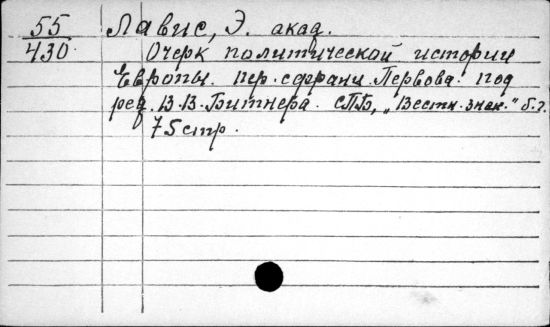 55 Лавис, Э. акад.
430 Очерк политической истории
Европы. Пер. с франц. Первова. под
ред. В.В. Битнера. СПБ, „Вестн. знан." б.г.
75 стр.